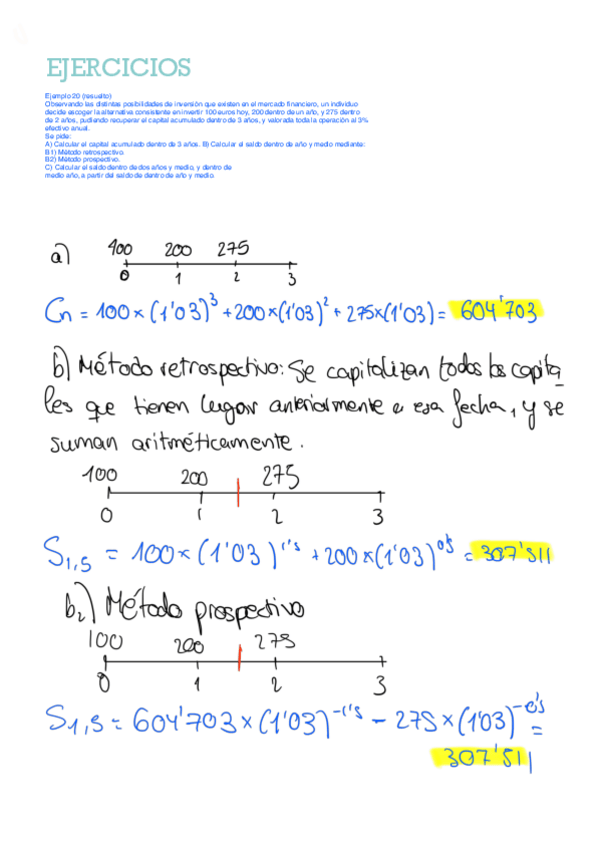 EJERCICIOS
Ejemplo 20 (resuelto)
Observando las distintas posibilidades de inversión que existen en el mercado financiero, un individuo
decide escoger la alternativa consistente en invertir 100 euros hoy, 200 dentro de un año, y 275 dentro
de 2 años, pudiendo recuperar el capital acumulado dentro de 3 años, y valorada toda la operación al 3%
efectivo anual.
Se pide:
A) Calcular el capital acumulado dentro de 3 años. B) Calcular el saldo dentro de año y medio mediante:
B1) Método retrospectivo.
B2) Método prospectivo.
C) Calcular el saldo dentro de dos años y medio, y dentro de
medio año, a partir del saldo de dentro de año y medio.
a) 100 200 275
0 1 2 3
Cn = 100×(1'03)³ + 200×(1'03)² + 275×(1'03) = 604'703
b) Método retrospectivo: Se capitalizan todos los capita
les que tienen lugar anteriormente a esa fecha, y se
suman aritméticamente.
100 200 275
0 1 2 3
S1,5 = 100×(1'03)^1'5 + 200×(1'03)^0'5 = 307'511
b2) Método prospectivo
100 200 275
0 1 2 3
S1,5 = 604'703×(1'03)^-1'5 - 275×(1'03)^-0'5 =
307'511